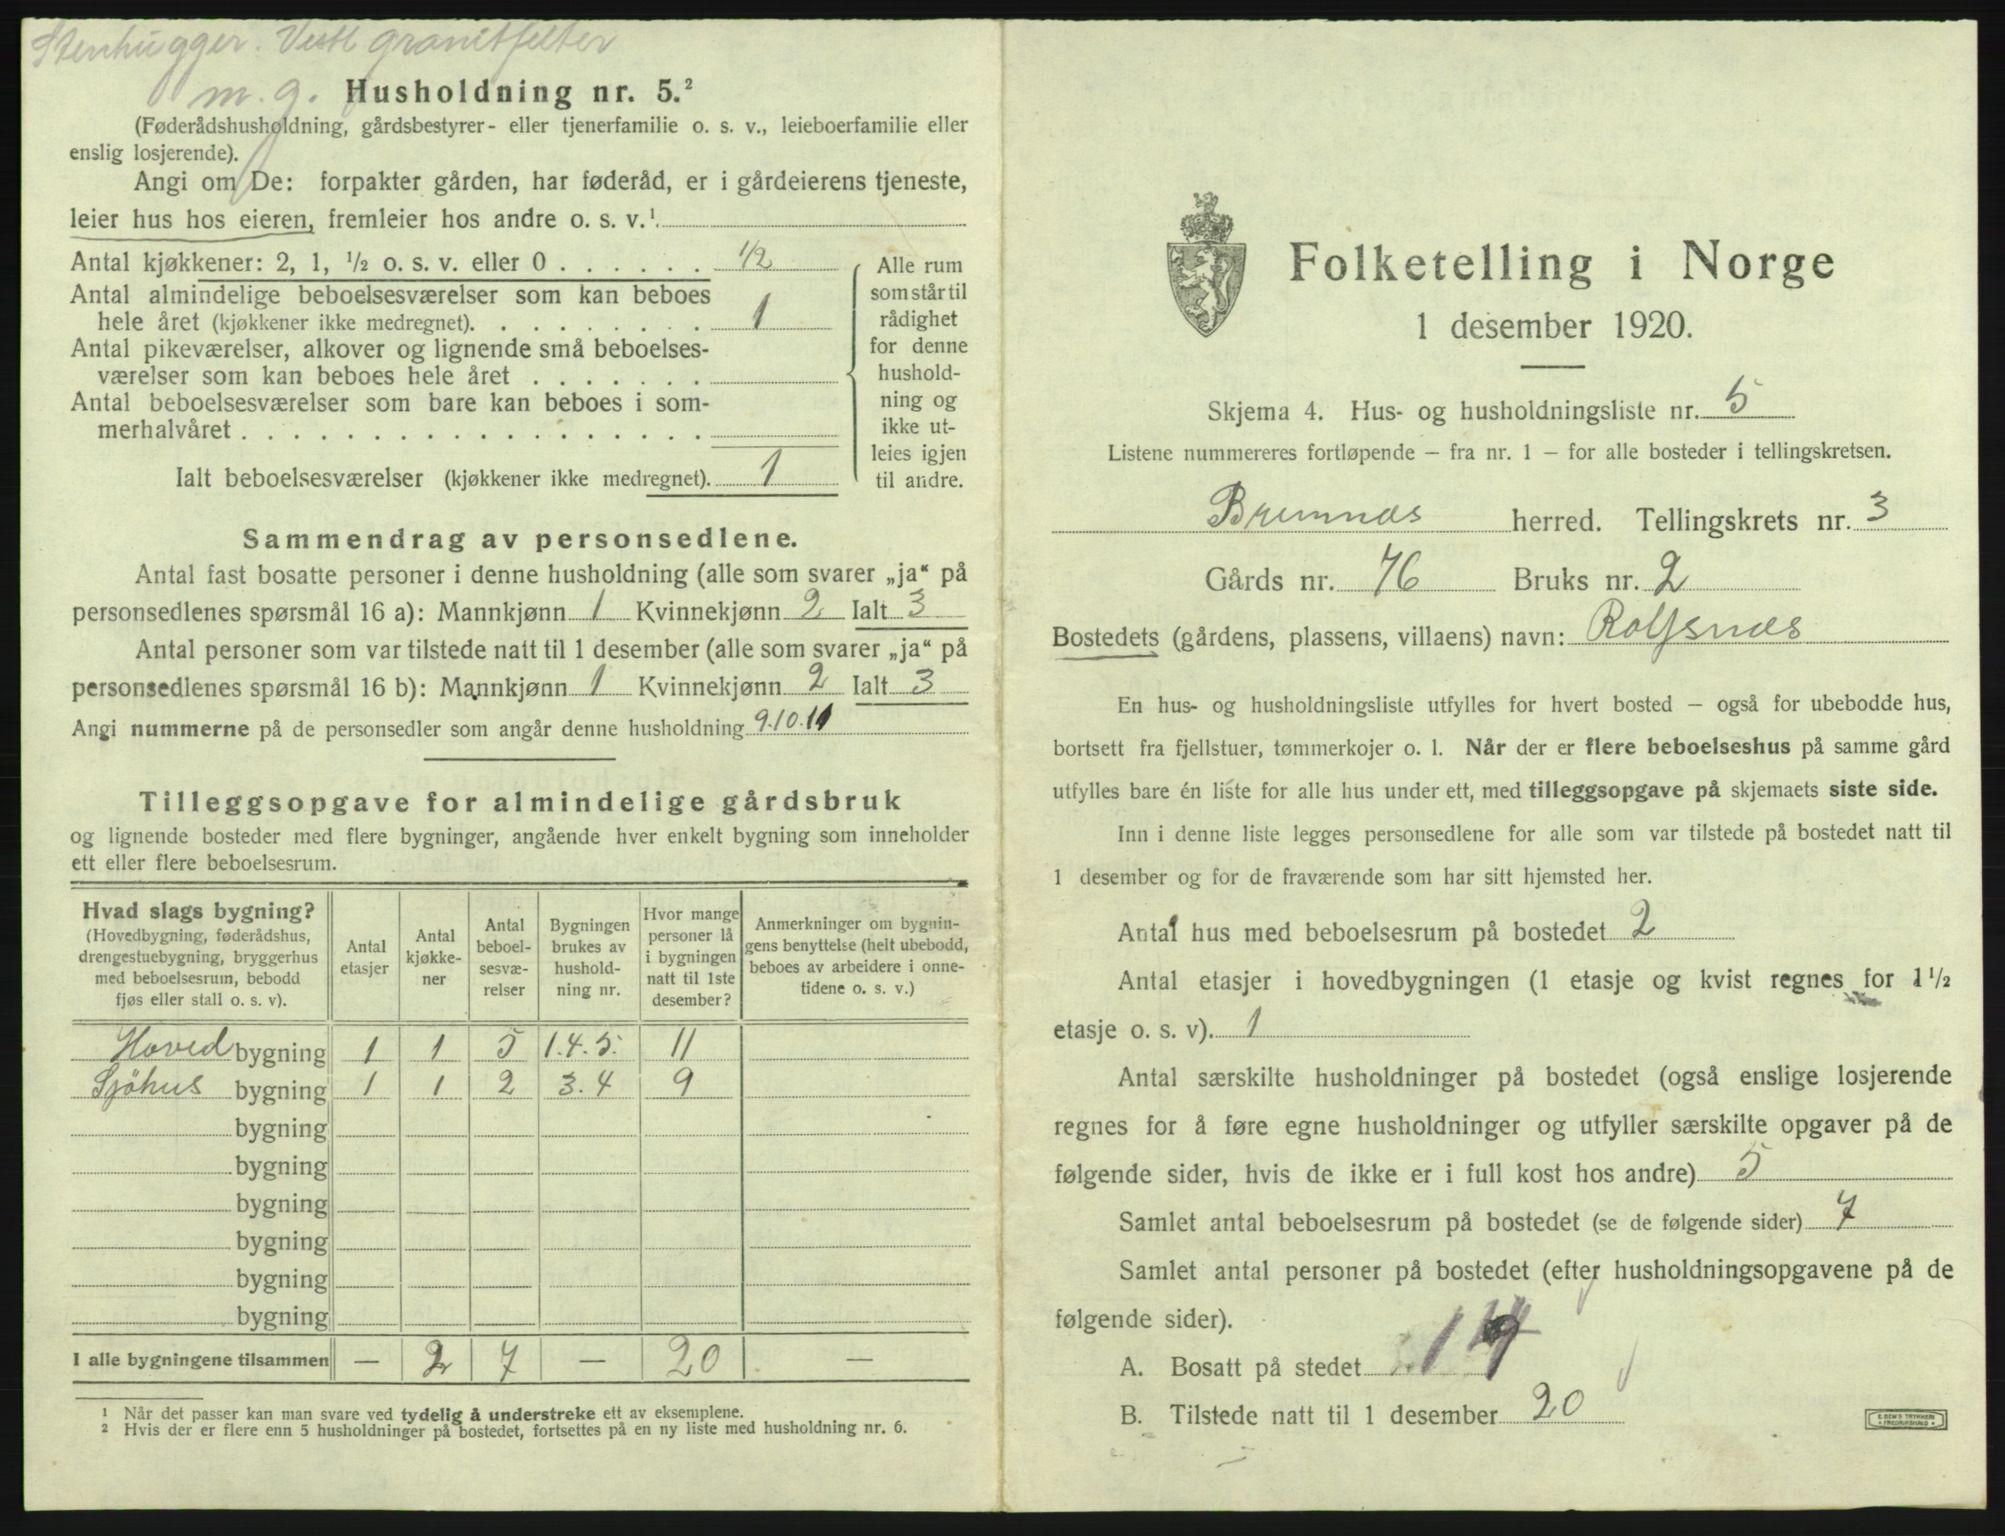 Stenhugger. Vestl granitfelter
m. g. Husholdning nr. 5.²
(Føderådshusholdning, gårdsbestyrer- eller tjenerfamilie o. s. v., leieboerfamilie eller
enslig losjerende).
Angi om De: forpakter gården, har føderåd, er i gårdeierens tjeneste,
leier hus hos eieren, fremleier hos andre o. s. v.¹
Antal kjøkkener: 2, 1, ½ o. s. v. eller 0 . . . . . . ½
Antal almindelige beboelsesværelser som kan beboes
hele året (kjøkkener ikke medregnet). . . . . . . . . 1
Antal pikeværelser, alkover og lignende små beboelses-
værelser som kan beboes hele året . . . . . . .
Antal beboelsesværelser som bare kan beboes i som-
merhalvåret . . . . . . . . . . . . . . . . . .
Ialt beboelsesværelser (kjøkkener ikke medregnet). 1
Alle rum
som står til
rådighet
for denne
hushold-
ning og
ikke ut-
leies igjen
til andre.
Sammendrag av personsedlene.
Antal fast bosatte personer i denne husholdning (alle som svarer „ja“ på
personsedlenes spørsmål 16 a): Mannkjønn 1 Kvinnekjønn 2 Ialt 3
Antal personer som var tilstede natt til 1 desember (alle som svarer „ja“ på
personsedlenes spørsmål 16 b): Mannkjønn 1 Kvinnekjønn 2 Ialt 3
Angi nummerne på de personsedler som angår denne husholdning 9.10.11
Tilleggsopgave for almindelige gårdsbruk
og lignende bosteder med flere bygninger, angående hver enkelt bygning som inneholder
ett eller flere beboelsesrum.
Hvad slags bygning?
(Hovedbygning, føderådshus,
drengestuebygning, bryggerhus
med beboelsesrum, bebodd
fjøs eller stall o. s. v).
Antal
etasjer
Antal
kjøkke-
ner
Antal
beboel-
sesvæ-
relser
Bygningen
brukes av
hushold-
ning nr.
Hvor mange
personer lå
i bygningen
natt til 1ste
desember?
Anmerkninger om bygnin-
gens benyttelse (helt ubebodd,
beboes av arbeidere i onne-
tidene o. s. v.)
Hoved bygning 1 1 5 1.4.5. 11
Sjöhus bygning 1 1 2 3.4 9
bygning
bygning
bygning
bygning
bygning
bygning
I alle bygningene tilsammen — 2 7 — 20 —
¹ Når det passer kan man svare ved tydelig å understreke ett av eksemplene.
² Hvis der er flere enn 5 husholdninger på bostedet, fortsettes på en ny liste med husholdning nr. 6.
Folketelling i Norge
1 desember 1920.
Skjema 4. Hus- og husholdningsliste nr. 5
Listene nummereres fortløpende — fra nr. 1 — for alle bosteder i tellingskretsen.
Bremnes herred. Tellingskrets nr. 3
Gårds nr. 76 Bruks nr. 2
Bostedets (gårdens, plassens, villaens) navn: Rolfsnes
En hus- og husholdningsliste utfylles for hvert bosted — også for ubebodde hus,
bortsett fra fjellstuer, tømmerkojer o. l. Når der er flere beboelseshus på samme gård
utfylles bare én liste for alle hus under ett, med tilleggsopgave på skjemaets siste side.
Inn i denne liste legges personsedlene for alle som var tilstede på bostedet natt til
1 desember og for de fraværende som har sitt hjemsted her.
Antal hus med beboelsesrum på bostedet 2
Antal etasjer i hovedbygningen (1 etasje og kvist regnes for 1½
etasje o. s. v). 1
Antal særskilte husholdninger på bostedet (også enslige losjerende
regnes for å føre egne husholdninger og utfyller særskilte opgaver på de
følgende sider, hvis de ikke er i full kost hos andre) 5
Samlet antal beboelsesrum på bostedet (se de følgende sider) 7
Samlet antal personer på bostedet (efter husholdningsopgavene på de
følgende sider).
A. Bosatt på stedet
B. Tilstede natt til 1 desember 20
E. SEM'S TRYKKERI
FREDRIKSHALD